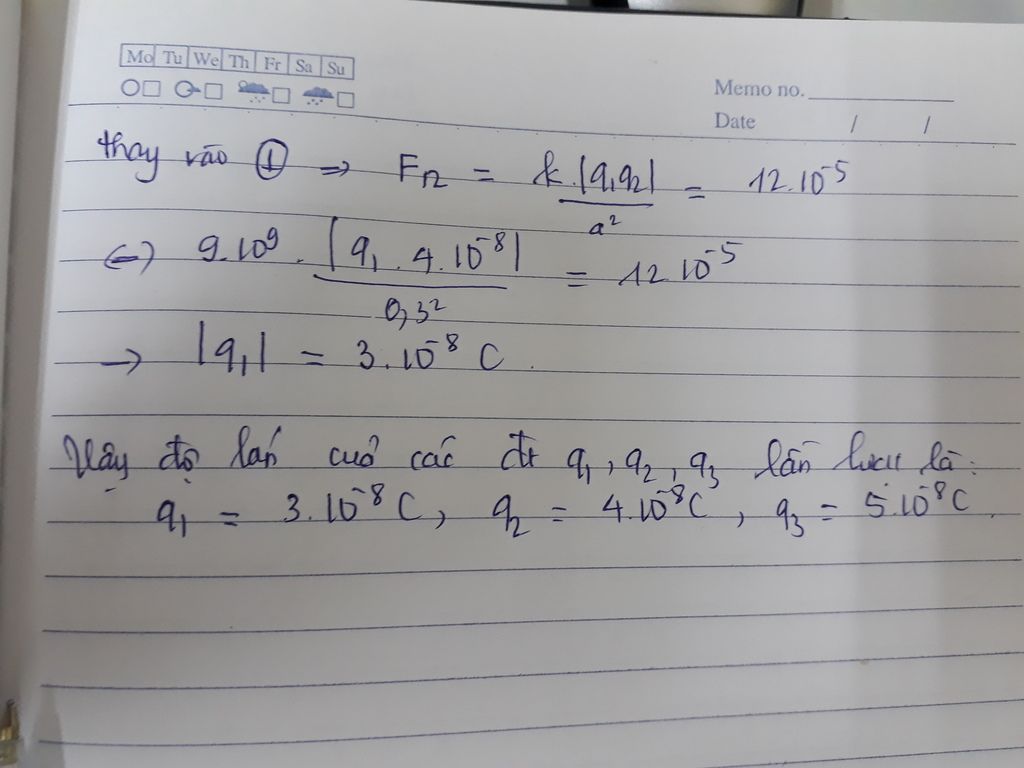 Mo Tu We Th Fr Sa Su
Memo no.
Date / /
thay vào ① => F₁₂ = k.|q₁q₂| / a² = 12.10⁻⁵
<=> 9.10⁹ . |q₁ . 4.10⁻⁸| / 0,3² = 12.10⁻⁵
→ |q₁| = 3.10⁻⁸ C.
Vậy độ lớn của các đt q₁, q₂, q₃ lần lượt là:
q₁ = 3.10⁻⁸ C, q₂ = 4.10⁻⁸C, q₃ = 5.10⁻⁸C.